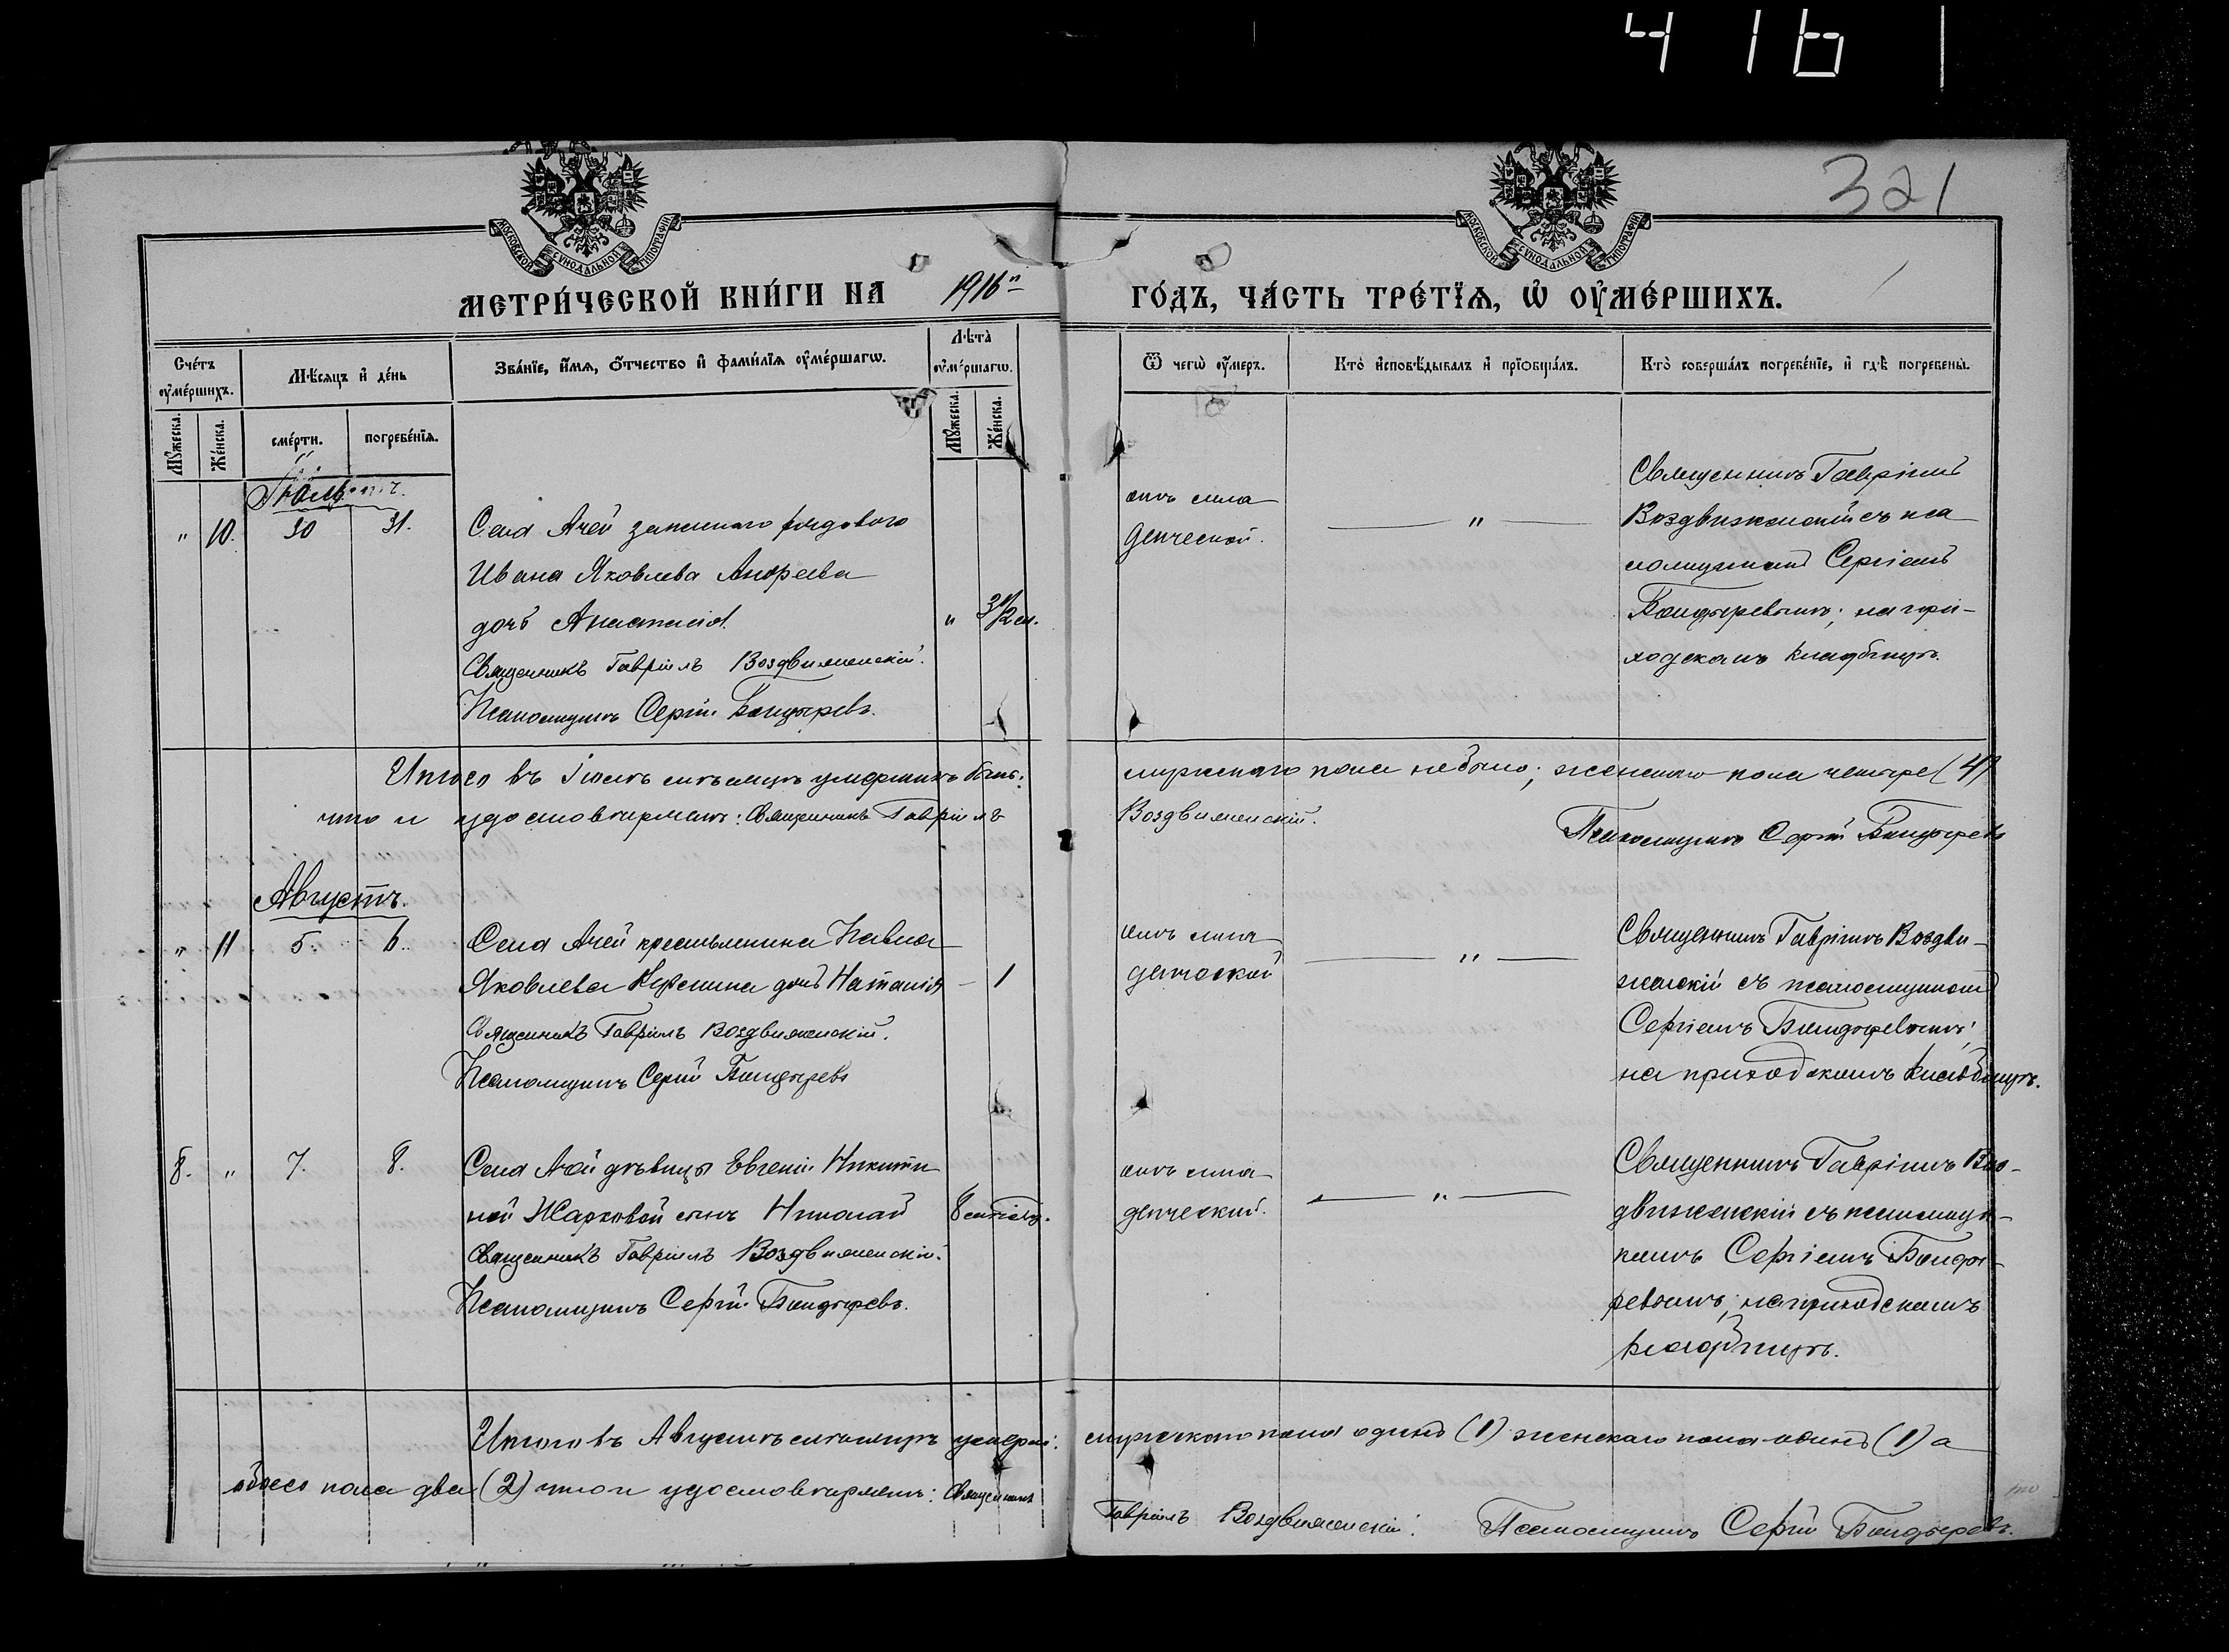 416
321
МОСКОВСКОЙ СУНОДАЛЬНОЙ ТИПОГРАФІИ
МОСКОВСКОЙ СУНОДАЛЬНОЙ ТИПОГРАФІИ
МЕТРИ́ЧЕСКОЙ КНИ́ГИ НА 1916й
ГО́ДЪ, ЧА́СТЬ ТРЕ́ТЇѦ, Ѡ҆ ОУ҆МЕ́РШИХЪ.
Сче́тъ оу҆ме́ршихъ.
Мѣ́сяцъ и҆ де́нь
Зва́нїе, и҆́мя, ѻ҆́тчество и҆ фами́лїя оу҆ме́ршагѡ.
Лѣ́та оу҆ме́ршагѡ.
Ѿ чегѡ̀ оу҆́меръ.
Кто̀ и҆сповѣ́дывалъ и҆ прїѻбща́лъ.
Кто̀ соверша́лъ погребе́нїе, и҆ гдѣ̀ погребены̀.
Мꙋ́жеска.
Же́нска.
сме́рти.
погребе́нїя.
Мꙋ́жеска.
Же́нска.
Іюль
" 10. 30 31.
Села Ачей запаснаго рядового
Ивана Яковлева Андреева
дочь Анастасія. " 3 1/2 м.
Священникъ Гавріилъ Воздвиженскій.
Псаломщикъ Сергій Бандыревъ.
отъ мла-
денческой.
"
Священникъ Гавріилъ
Воздвиженскій съ пса-
ломщикомъ Сергіемъ
Бандыревымъ; на при-
ходскомъ кладбищѣ.
Итого въ Іюлѣ мѣсяцѣ умершихъ было:
мужскаго пола не было; женскаго пола четыре (4)
что и удостовѣряемъ: Священникъ Гавріилъ
Воздвиженскій.
Псаломщикъ Сергій Бандыревъ
Августъ.
" 11 5. 6.
Села Ачей крестьянина Павла
Яковлева дочь Наталія - 1
Священникъ Гавріилъ Воздвиженскій.
Псаломщикъ Сергій Бандыревъ
отъ мла-
денческой
"
Священникъ Гавріилъ Воздви-
женскій съ псаломщикомъ
Сергіемъ Бандыревымъ;
на приходскомъ кладбищѣ.
8. " 7. 8.
Села Ачей дѣвицы Евгеніи Никити-
ной Жарковой сынъ Николай 8 мѣсяц.
Священникъ Гавріилъ Воздвиженскій.
Псаломщикъ Сергій Бандыревъ.
отъ мла-
денческой.
"
Священникъ Гавріилъ Воз-
движенскій съ псаломщи-
комъ Сергіемъ Банды-
ревымъ; на приходскомъ
кладбищѣ.
Итого въ Августѣ мѣсяцѣ умерш:
мужескаго пола одинъ (1) женскаго пола одинъ (1) а
обоего пола два (2) что и удостовѣряемъ: Священникъ
Гавріилъ Воздвиженскій. Псаломщикъ Сергій Бандыревъ.